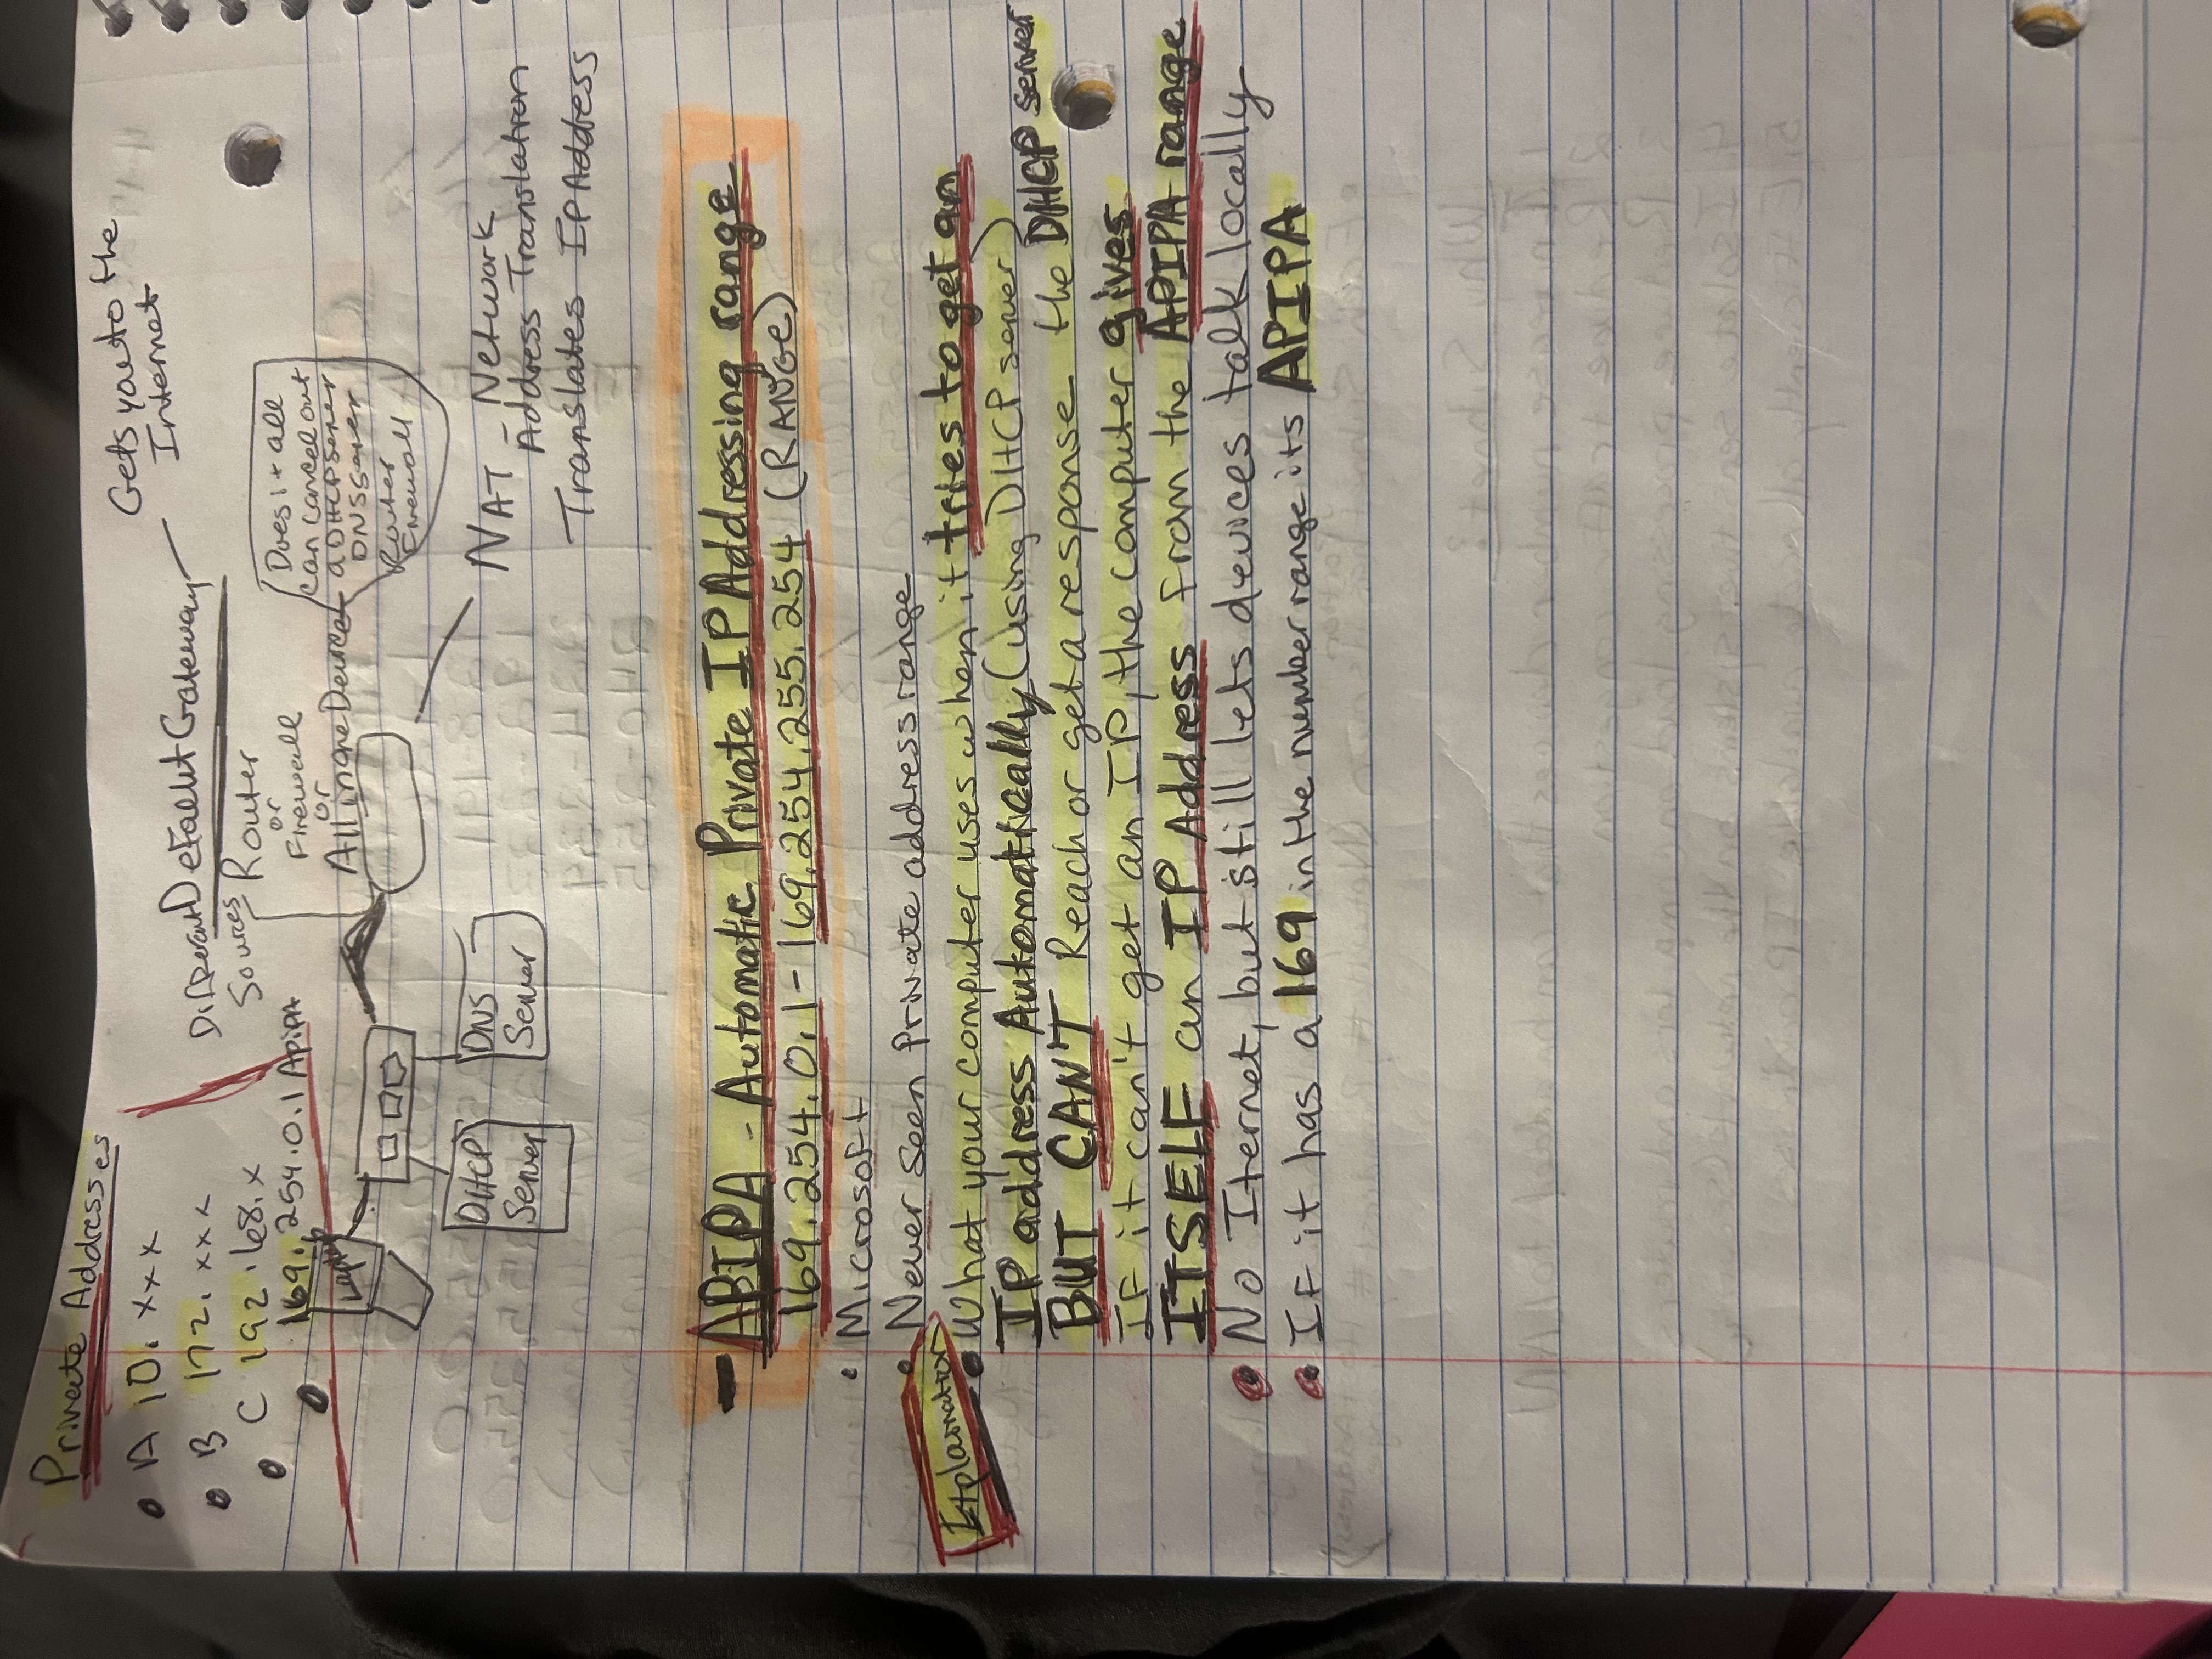 Private Addresses
A 10. xxx
B 172. xxx
C 192.168.x
169.254.0.1 APIPA
Gets you to the
Internet
Different Default Gateway
Sources
Router
or
Firewall
or
All in one Device
Does it all
can cancel out
a DHCP server
DNS Server
Router
Firewall
Laptop
DHCP
Server
DNS
Server
NAT - Network
Address Translation
Translates IP Address
- APIPA - Automatic Private IP Addressing range
169.254.0.1 - 169.254.255.254 (RANGE)
Microsoft
Never seen private address range
Explanation
What your computer uses when it tries to get an
IP address Automatically (using DHCP server)
BUT CAN'T Reach or get a response the DHCP server
If it can't get an IP, the computer gives
ITSELF an IP Address from the APIPA range
No Iternet, but still lets devices talk locally
If it has a 169 in the number range its APIPA